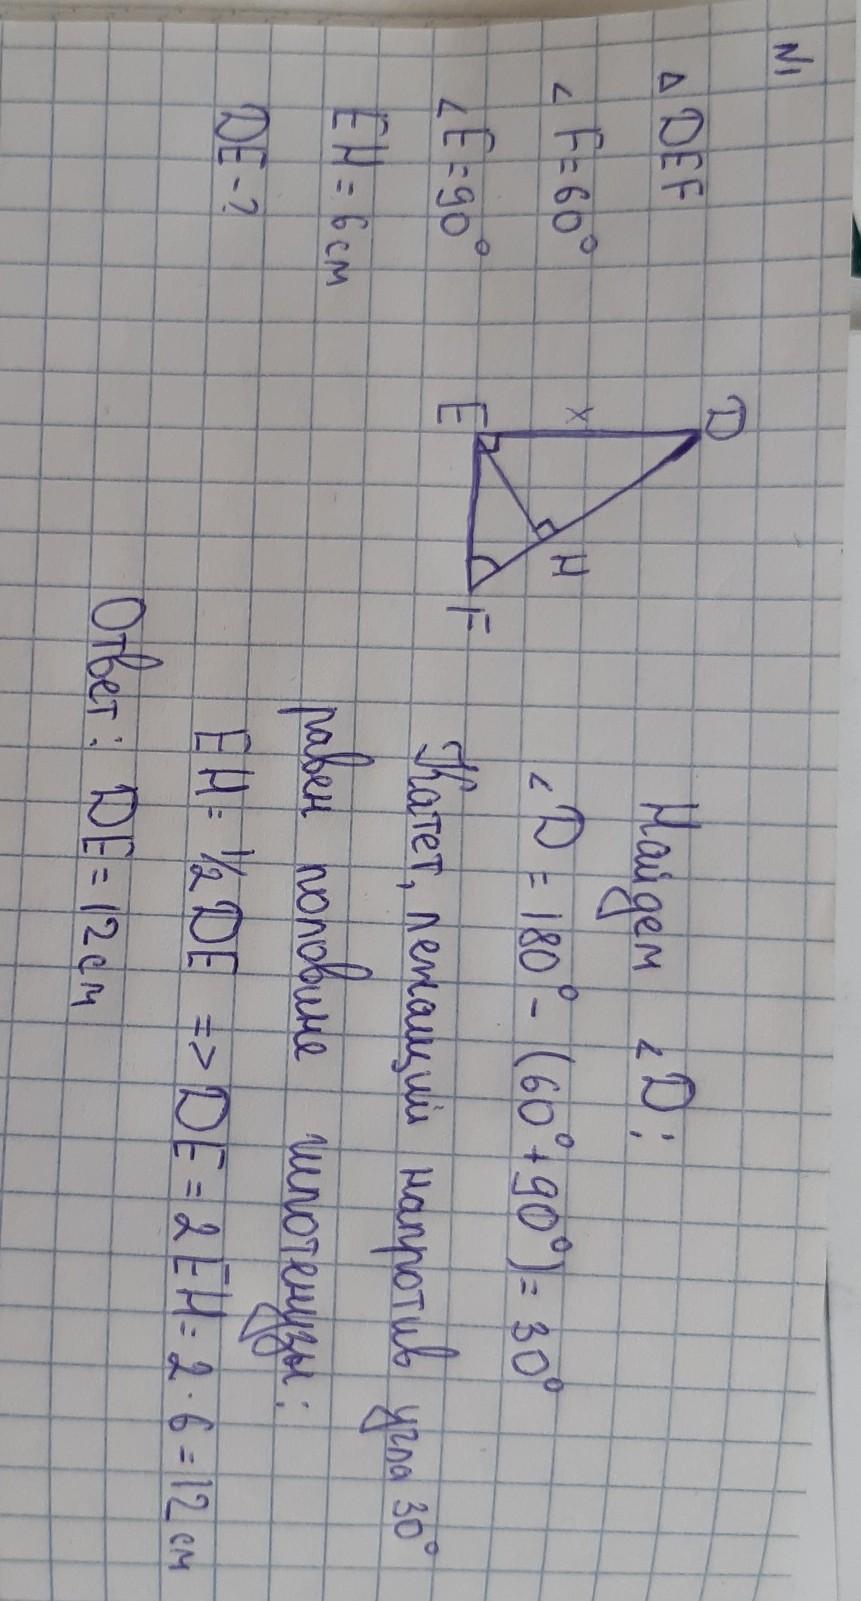 N1
△ DEF
∠ F = 60°
∠E = 90°
EH = 6 см
DE - ?
D
x
E
H
F
Найдем ∠D:
∠D = 180° - (60° + 90°) = 30°
Катет, лежащий напротив угла 30°
равен половине гипотенузы:
EH = 1/2 DE => DE = 2EH = 2 · 6 = 12 см
Ответ: DE = 12 см